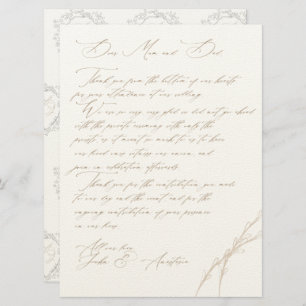 Dear Mom and Dad,
Thank you from the bottom of our hearts
for your attendance at our wedding.
We are so very glad we did not go ahead
with the private ceremony with only the
priests as it meant so much to us to have
our loved ones witness our union, and
join in celebration afterwards.
Thank you for the contribution you made
to our day and the event and for the
ongoing contribution of your presence
in our lives.
All our love,
John & Anastasia